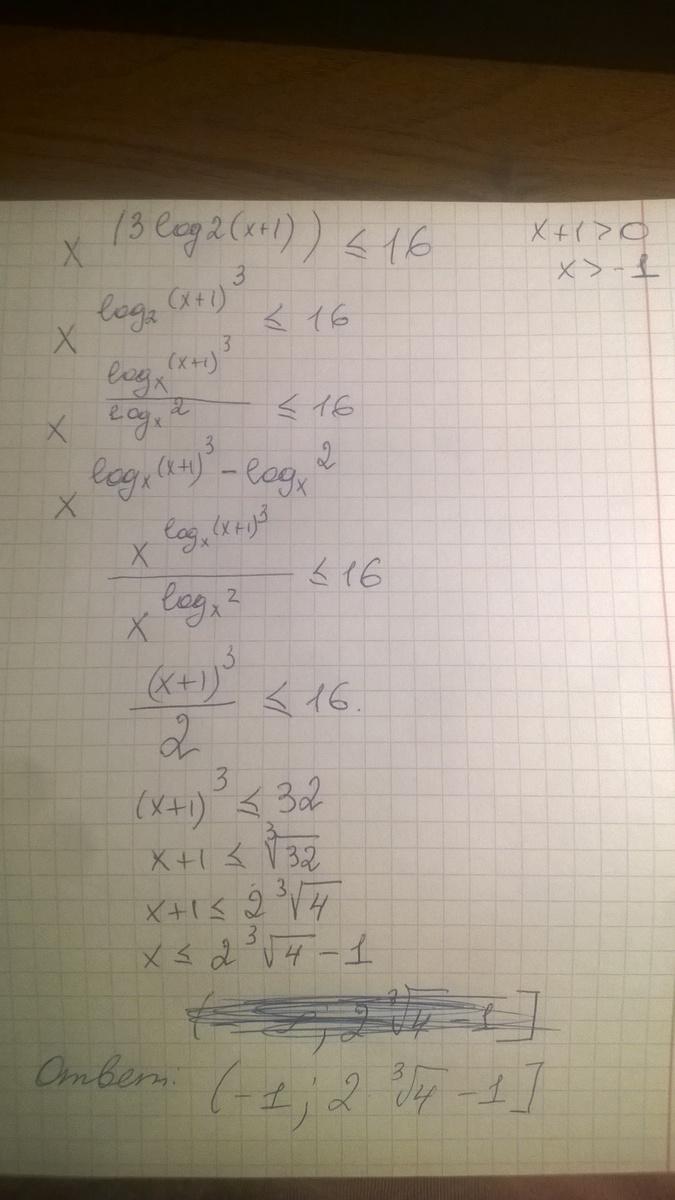 x^(3log2(x+1)) ≤ 16
x+1>0
x>-1
x^(log₂(x+1)³) ≤ 16
x^(logₓ(x+1)³/logₓ2) ≤ 16
x^(logₓ(x+1)³ - logₓ2)
x^(logₓ(x+1)³) / x^(logₓ2) ≤ 16
(x+1)³/2 ≤ 16.
(x+1)³ ≤ 32
x+1 ≤ ∛32
x+1 ≤ 2∛4
x ≤ 2∛4 - 1
Ответ: (-1; 2·∛4 - 1]